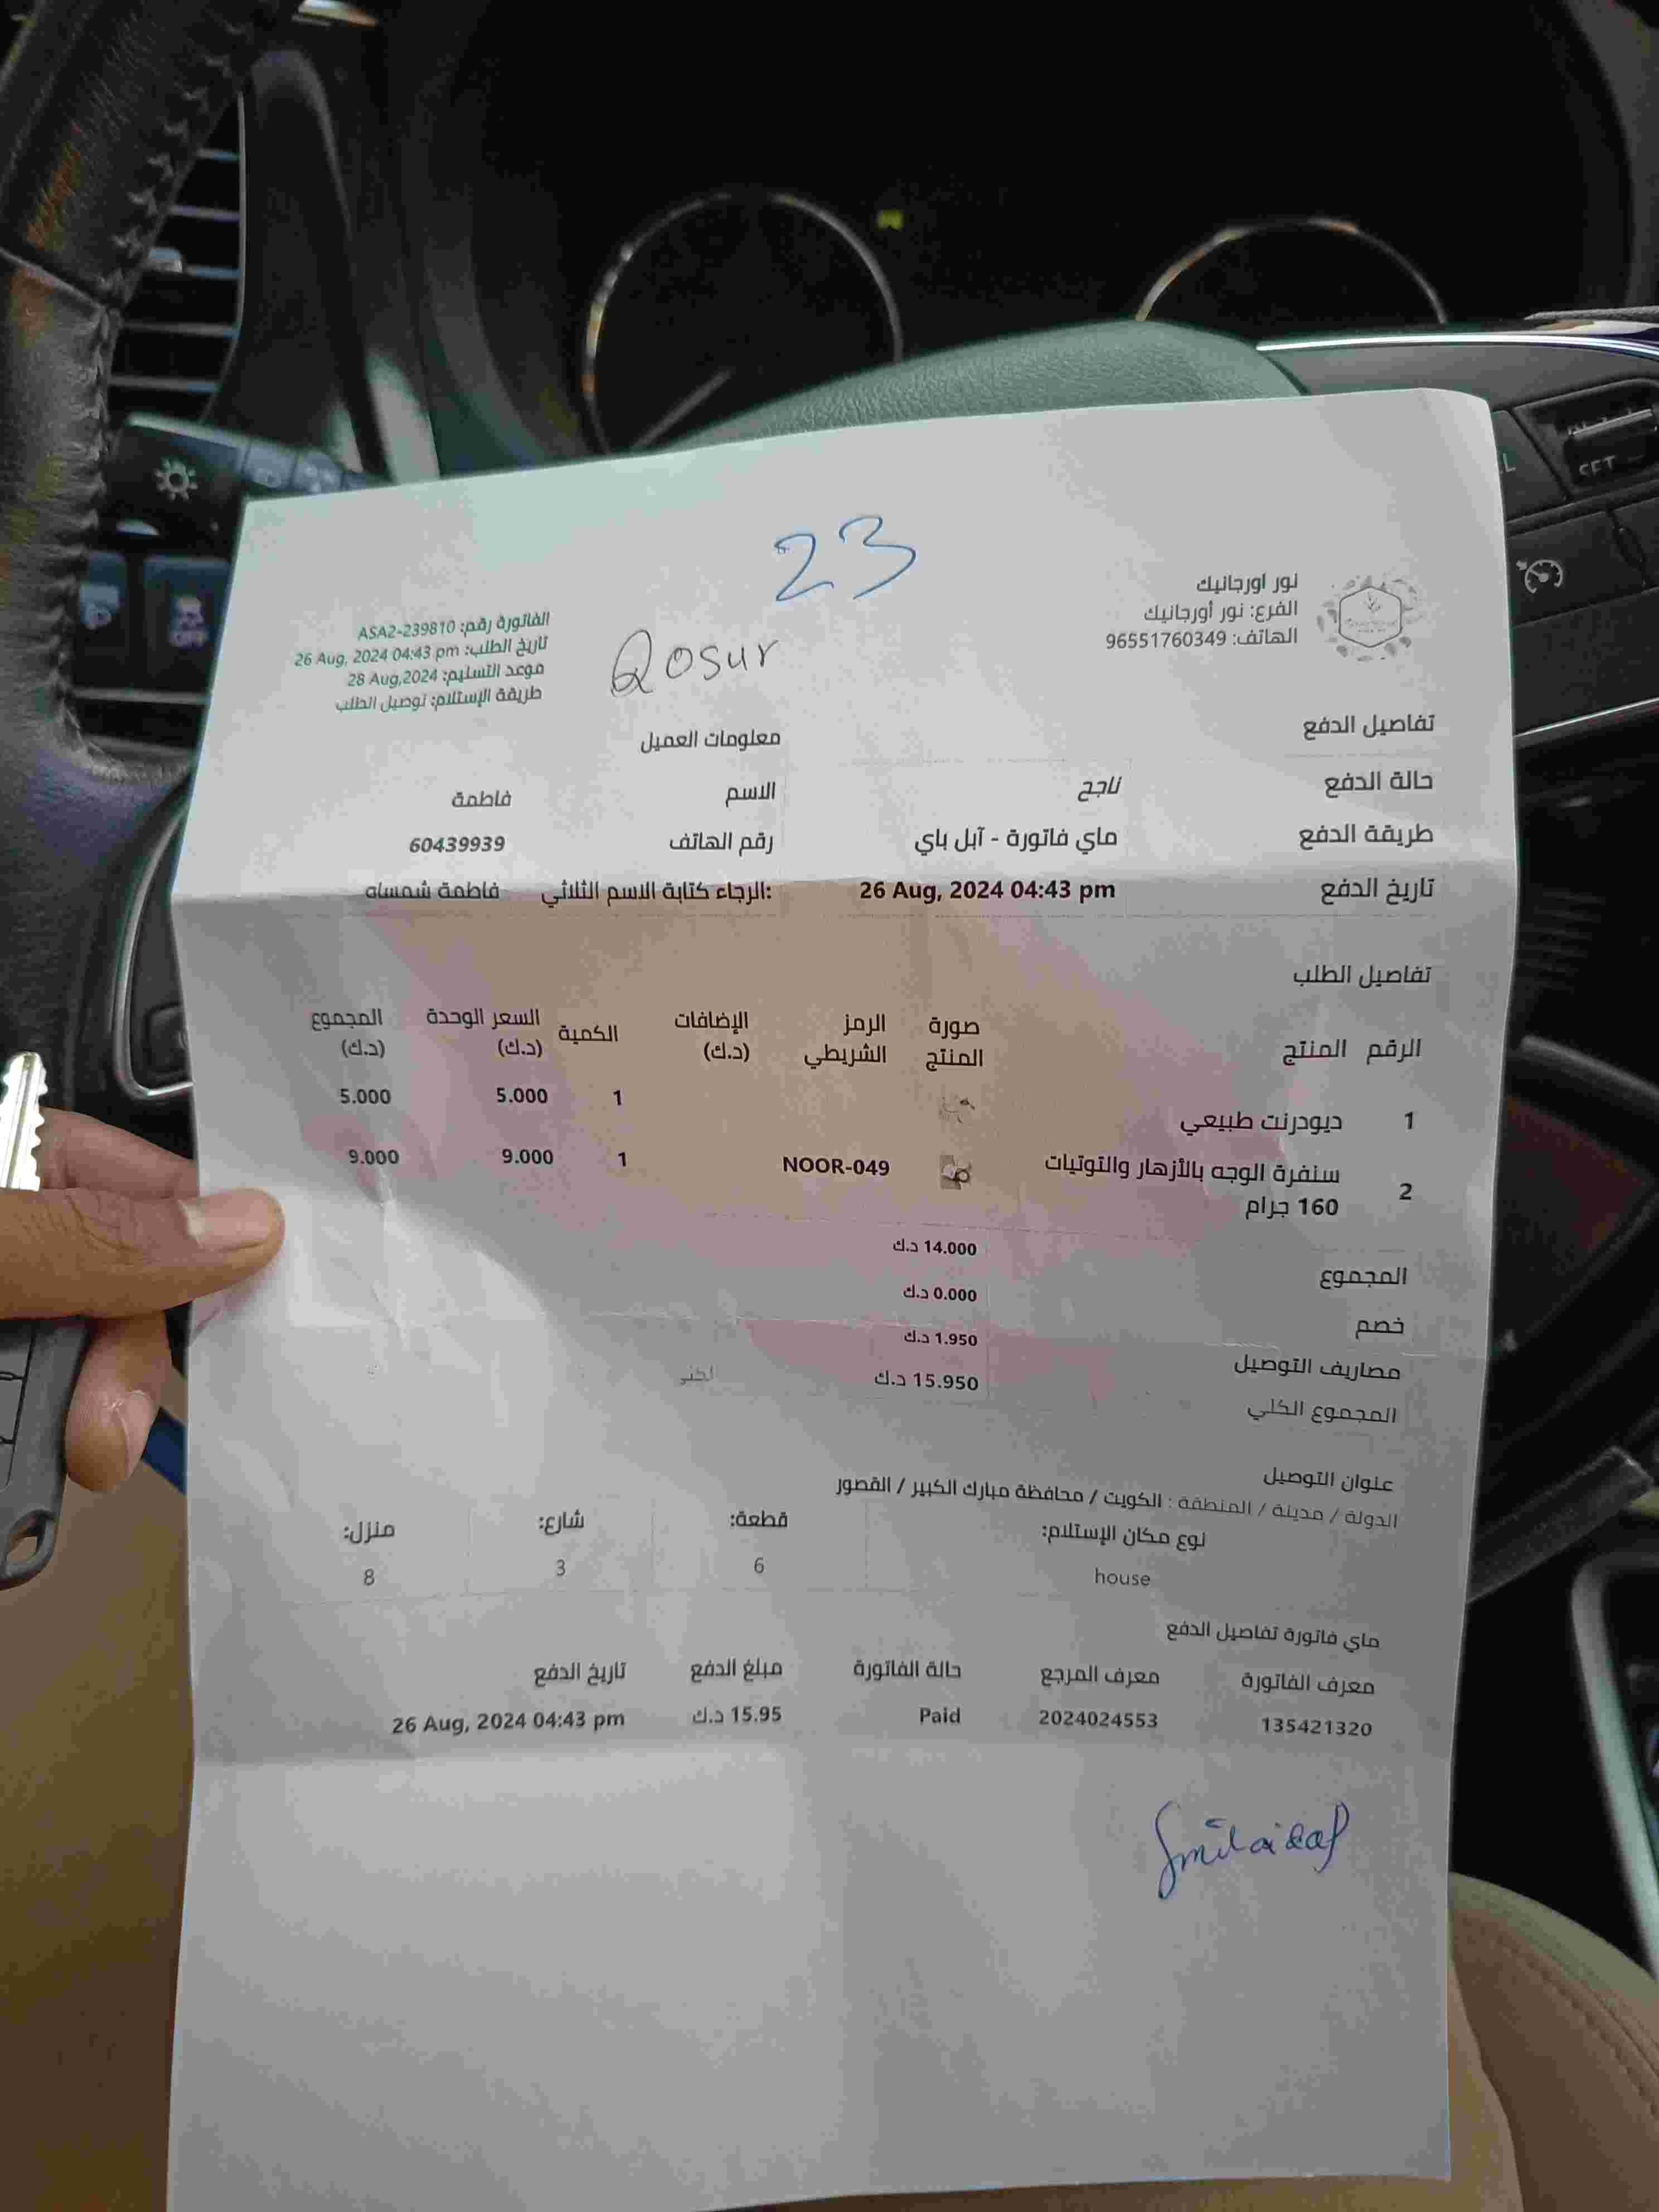 23
Qosur
نور اورجانيك
الفرع: نور أورجانيك
الهاتف: 96551760349
الفاتورة رقم: ASA2-239810
تاريخ الطلب: 26 Aug, 2024 04:43 pm
موعد التسليم: 28 Aug,2024
طريقة الإستلام: توصيل الطلب
تفاصيل الدفع
حالة الدفع ناجح
طريقة الدفع ماي فاتورة - آبل باي
تاريخ الدفع 26 Aug, 2024 04:43 pm
معلومات العميل
الاسم فاطمة
رقم الهاتف 60439939
الرجاء كتابة الاسم الثلاثي: فاطمة شمساه
تفاصيل الطلب
الرقم المنتج صورة المنتج الرمز الشريطي الإضافات (د.ك) الكمية السعر الوحدة (د.ك) المجموع (د.ك)
1 ديودرنت طبيعي 1 5.000 5.000
2 سنفرة الوجه بالأزهار والتوتيات NOOR-049 1 9.000 9.000
160 جرام
المجموع 14.000 د.ك
خصم 0.000 د.ك
مصاريف التوصيل 1.950 د.ك
المجموع الكلي 15.950 د.ك
عنوان التوصيل
الدولة / مدينة / المنطقة : الكويت / محافظة مبارك الكبير / القصور
نوع مكان الإستلام: قطعة: شارع: منزل:
house 6 3 8
ماي فاتورة تفاصيل الدفع
معرف الفاتورة معرف المرجع حالة الفاتورة مبلغ الدفع تاريخ الدفع
135421320 2024024553 Paid 15.95 د.ك 26 Aug, 2024 04:43 pm